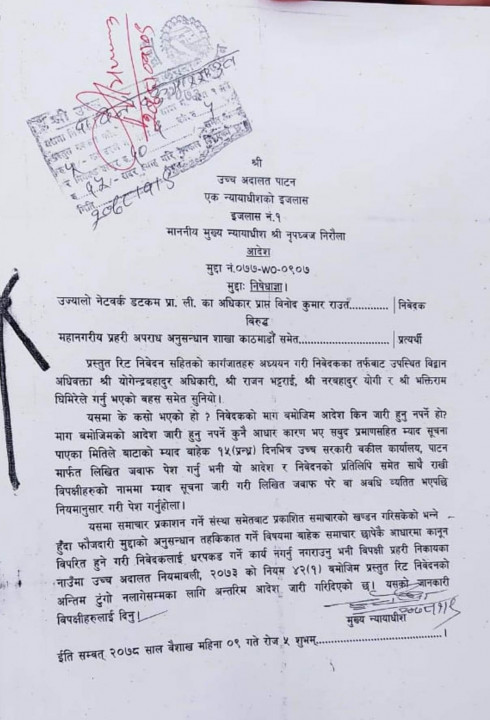 श्री
उच्च अदालत पाटन
एक न्यायाधीशको इजलास
इजलास नं.१
माननीय मुख्य न्यायाधीश श्री नृपध्वज निरौला
आदेश
मुद्दा नं.०७७-WO-०९०७
मुद्दाः निषेधाज्ञा।
उज्यालो नेटवर्क डटकम प्रा. ली. का अधिकार प्राप्त विनोद कुमार राउत............. | निवेदक
विरुद्ध
महानगरीय प्रहरी अपराध अनुसन्धान शाखा काठमाडौं समेत............................. | प्रत्यर्थी
प्रस्तुत रिट निवेदन सहितको कागंजातहरु अध्ययन गरी निवेदकका तर्फबाट उपस्थित बिद्वान
अधिवक्ता श्री योगेन्द्रबहादुर अधिकारी, श्री राजन भट्टराई, श्री नरबहादुर योगी र श्री भक्तिराम
घिमिरेले गर्नु भएको बहस समेत सुनियो।
यसमा के कसो भएको हो ? निवेदकको माग बमोजिम आदेश किन जारी हुनु नपर्ने हो?
माग बमोजिमको आदेश जारी हुनु नपर्ने कुनै आधार कारण भए सबुद प्रमाणसहित म्याद सूचना
पाएका मितिले बाटाको म्याद बाहेक १५(पन्ध्र) दिनभित्र उच्च सरकारी वकील कार्यालय, पाटन
मार्फत लिखित जवाफ पेश गर्नु भनी यो आदेश र निवेदनको प्रतिलिपि समेत साथै राखी
विपक्षीहरुको नाममा म्याद सूचना जारी गरी लिखित जवाफ परे वा अवधि व्यतित भएपछि
नियमानुसार गरी पेश गर्नुहोला।
यसमा समाचार प्रकाशन गर्ने संस्था समेतबाट प्रकाशित समाचारको खण्डन गरिसकेको भन्ने
हुँदा फौजदारी मुद्दाको अनुसन्धान तहकिकात गर्ने विषयमा बाहेक समाचार छापेकै आधारमा कानून
विपरित हुने गरी निवेदकलाई धरपकड गर्ने कार्य नगर्नु नगराउनु भनी विपक्षी प्रहरी निकायका
नाउँमा उच्च अदालत नियमावली, २०७३ को नियम ४२(१) बमोजिम प्रस्तुत रिट निवेदनको
अन्तिम टुंगो नलागेसम्मका लागि अन्तरिम आदेश जारी गरिदिएको छ। यसको जानकारी
बिपक्षीहरुलाई दिनु।
मुख्य न्यायाधीश
ईति सम्बत् २०७८ साल बैशाख महिना ०९ गते रोज ५ शुभम्.....................................।